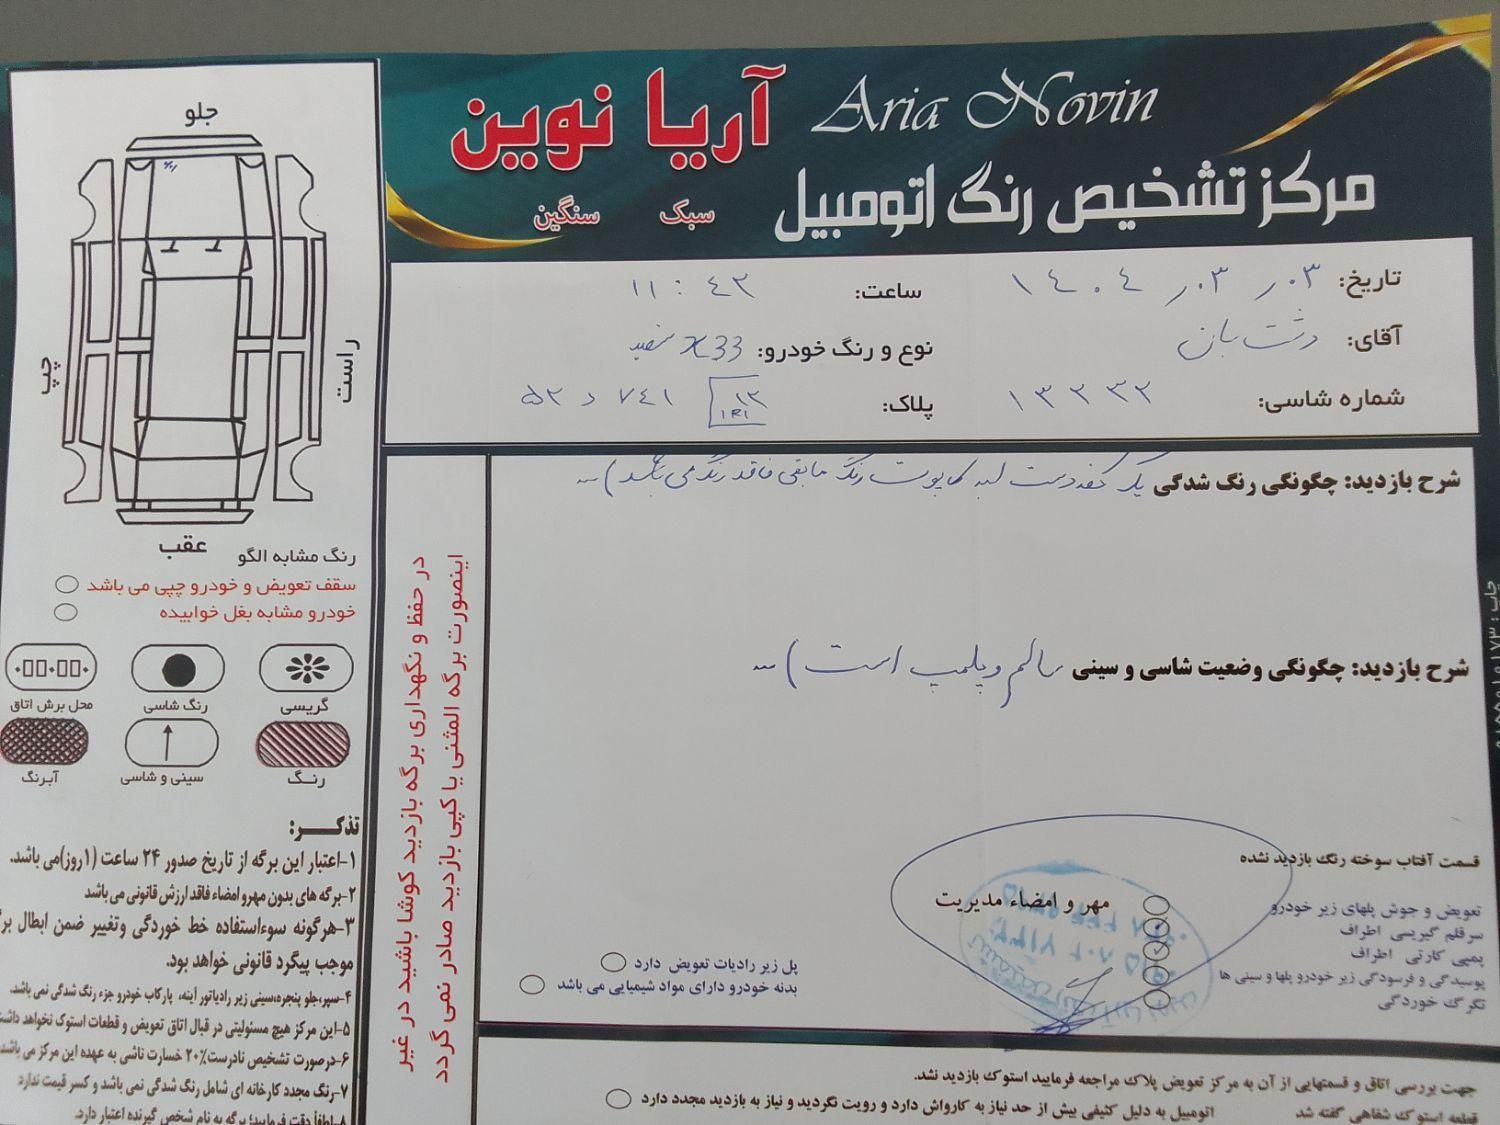 Aria Novin
آریا نوین
مرکز تشخیص رنگ اتومبیل
سبک سنگین
تاریخ: ۱۴۰۴ ر۰۳ ر۰۳
ساعت: ۱۱:۴۲
آقای: دشت بان
نوع و رنگ خودرو: x33 سفید
شماره شاسی: ۱۳۲۳۲
پلاک: ۱۲ IRI ۷۴۱ د ۵۲
شرح بازدید: چگونگی رنگ شدگی یک کف دست لبه کاپوت رنگ مابقی فاقد رنگ می باشد)
شرح بازدید: چگونگی وضعیت شاسی و سینی سالم و پلمپ است)
قسمت آفتاب سوخته رنگ بازدید نشده
مهر و امضاء مدیریت
تعویض و جوش پلهای زیر خودرو
سرقلم گیریسی اطراف
پمپی کارتی اطراف
پوسیدگی و فرسودگی زیر خودرو پلها و سینی ها
تگرگ خوردگی
پل زیر رادیات تعویض دارد
بدنه خودرو دارای مواد شیمیایی می باشد
جهت بررسی اتاق و قسمتهایی از آن به مرکز تعویض پلاک مراجعه فرمایید استوک بازدید نشد.
قطعه استوک شفاهی گفته شد
اتومبیل به دلیل کثیفی بیش از حد نیاز به کارواش دارد و رویت نگردید و نیاز به بازدید مجدد دارد
در حفظ و نگهداری برگه بازدید کوشا باشید در غیر
اینصورت برگه المثنی یا کپی بازدید صادر نمی گردد
جلو
چپ
راست
عقب
رنگ مشابه الگو
سقف تعویض و خودرو چپی می باشد
خودرو مشابه بغل خوابیده
گریسی
رنگ شاسی
محل برش اتاق
رنگ
سینی و شاسی
آبرنگ
تذکر:
۱-اعتبار این برگه از تاریخ صدور ۲۴ ساعت (۱روز)می باشد.
۲-برگه های بدون مهر و امضاء فاقد ارزش قانونی می باشد
۳-هرگونه سوءاستفاده خط خوردگی وتغییر ضمن ابطال
موجب پیگرد قانونی خواهد بود.
۴-سپر،جلو پنجره،سینی زیر رادیاتور آینه، پارکاب خودرو جزء رنگ شدگی نمی باشد.
۵-این مرکز هیچ مسئولیتی در قبال اتاق تعویض و قطعات استوک نخواهد
۶-درصورت تشخیص نادرست ۲۰٪ خسارت ناشی به عهده این مرکز می باشد
۷-رنگ مجدد کارخانه ای شامل رنگ شدگی نمی باشد و کسر قیمت ندارد
۸-لطفاً دقت فرمایید؛ برگه به نام شخص گیرنده اعتبار دارد.